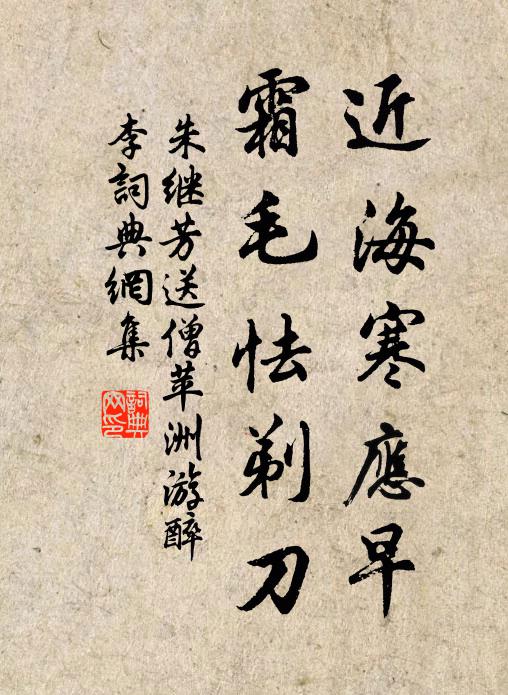 近海寒應早
霜毛怯剃刀
朱继芳送僧苹洲游醉
李詞典網集
詞典網印